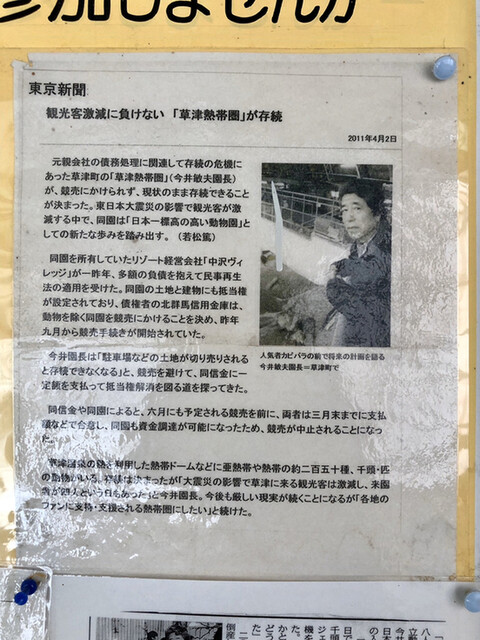 参加しませんか
東京新聞
観光客激減に負けない 「草津熱帯圏」が存続
2011年4月2日
元親会社の債務処理に関連して存続の危機に
あった草津町の「草津熱帯圏」(今井敏夫園長)
が、競売にかけられず、現状のまま存続できること
が決まった。東日本大震災の影響で観光客が激
減する中で、同園は「日本一標高の高い動物園」と
しての新たな歩みを踏み出す。 (若松篤)
同園を所有していたリゾート経営会社「中沢ヴィ
レッジ」が一昨年、多額の負債を抱えて民事再生
法の適用を受けた。同園の土地と建物にも抵当権
が設定されており、債権者の北群馬信用金庫は、
動物を除く同園を競売にかけることを決め、昨年
九月から競売手続きが開始されていた。
今井園長は「駐車場などの土地が切り売りされる
と存続できなくなる」と、競売を避けて、同信金に一
定額を支払って抵当権解消を図る道を探ってきた。
同信金や同園によると、六月にも予定される競売を前に、両者は三月末までに支払
額などで合意し、同園も資金調達が可能になったため、競売が中止されることになっ
た。
草津温泉の熱を利用した熱帯ドームなどに亜熱帯や熱帯の約二百五十種、千頭・匹
の動物がいる。存続は決まったが「大震災の影響で草津に来る観光客は激減し、来園
者が四人という日もあった」と今井園長。今後も厳しい現実が続くことになるが「各地の
ファンに支持・支援される熱帯圏にしたい」と続けた。
人気者カピバラの前で将来の計画を語る
今井敏夫園長=草津町で